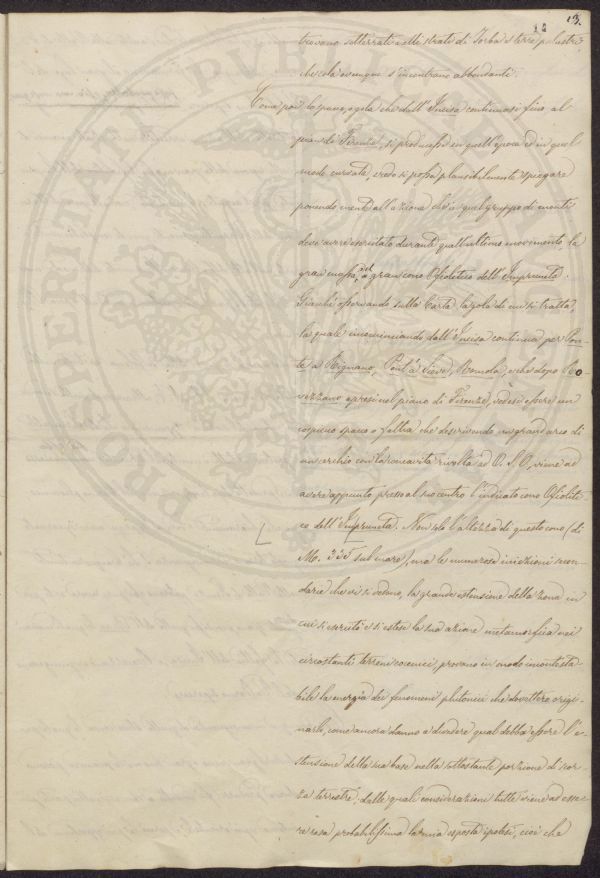 13.
14
trovano sotterrate nelli strati di Torba e terre palustri,
che colà ovunque s'incontrano abbondanti.
Come poi lo spacco, o gola che dall'Incisa continuasi fino al
piano di Firenze, si producesse in quell'epoca ed in quel
modo curvato, credo si possa plausibilmente spiegare
ponendo mente all'azione che in quel gruppo di monti
deve avere esercitato durante quell'ultimo movimento la
gran massa, o il gran cono Ofiolitico dell'Impruneta.
Giacchè osservando sulla Carta la gola di cui si tratta,
la quale incominciando dall'Incisa continua per Pon-
te a Rignano, Pont'a Sieve, Remole, e che dopo Ro-
vezzano apresi nel piano di Firenze, vedesi essere un
copiuno spacco o faltia che descrivendo un grand'arco di
un cerchio con la concavità rivolta ad O. S. O, viene ad
avere appunto presso al suo centro l'indicato cono Ofioliti-
co dell'Impruneta. Non solo l'altezza di questo cono (di
M. 335 sul mare), ma le numerose iniezioni secon-
darie che vi si vedono, la grande estensione della zona in
cui si esercitò e si estese la sua azione metamorfica nei
circostanti terreni eocenici, provano in modo incontesta-
bile la energia dei fenomeni plutonici che dovettero origi-
narlo, come ancora danno a dividere qual debba essere l'e-
stensione della sua base nella sottostante porzione di scor-
za terrestre, dalle quali considerazioni tutte viene ad esse-
re resa probabilissima la mia esposta ipotesi, cioè che
PRO PUBLICA PROSPERITATE